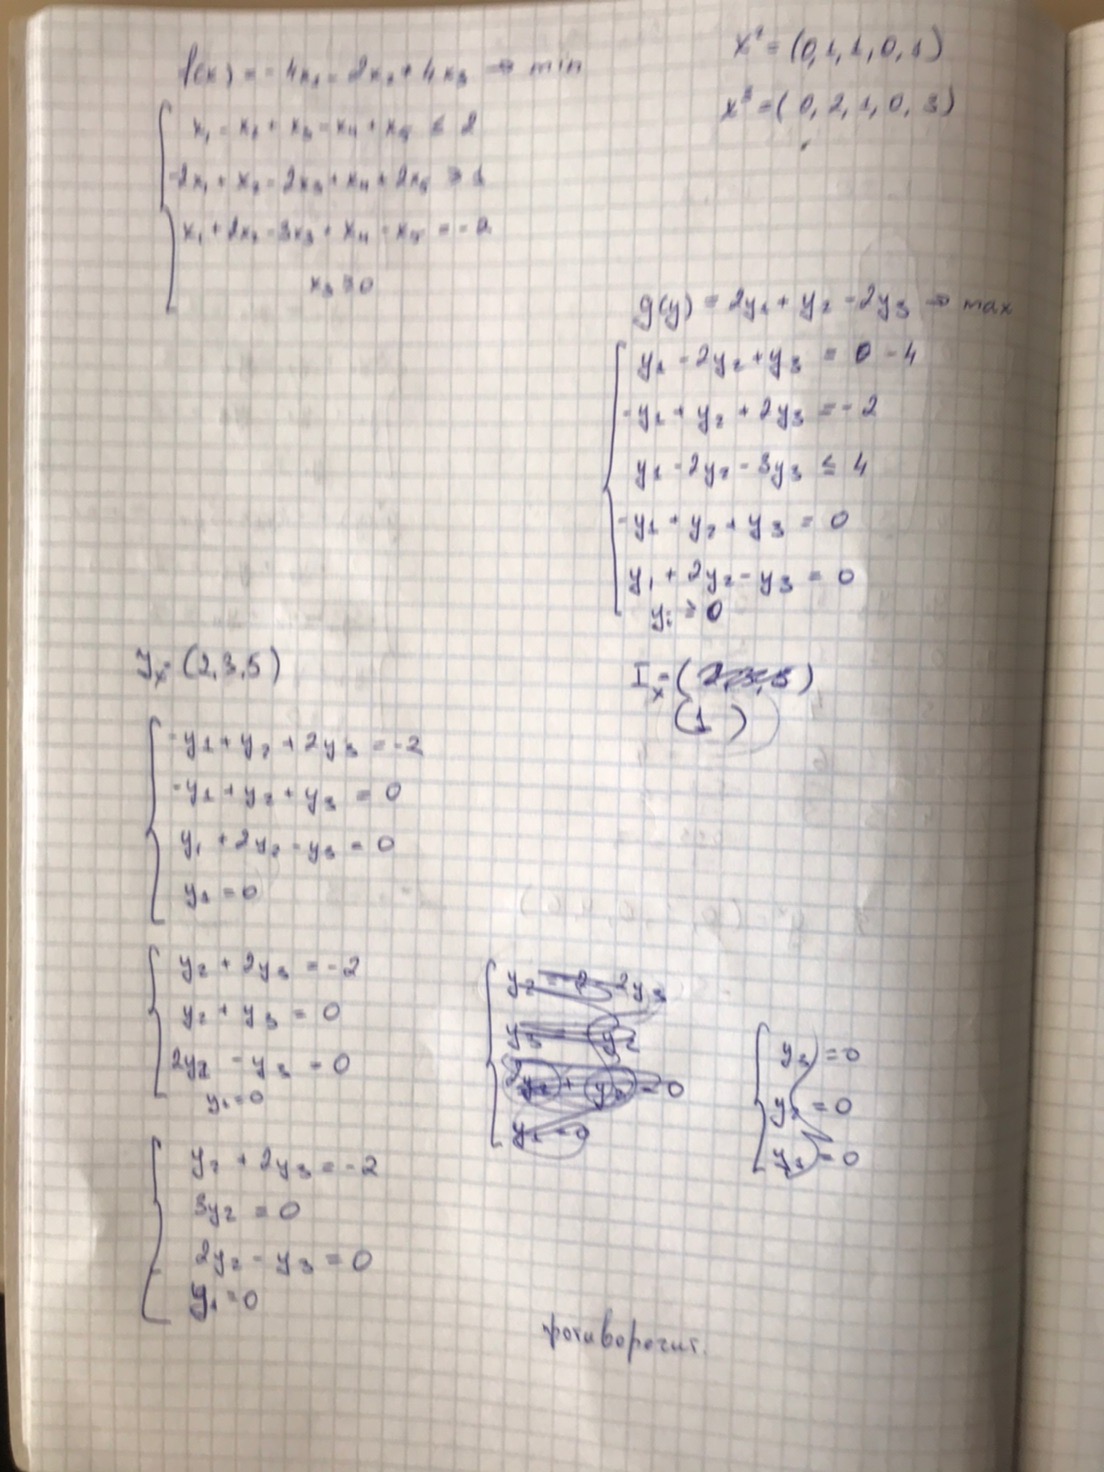 f(x) = -4x₁ - 2x₂ + 4x₃ → min
x₁ - x₂ + x₃ - x₄ + x₅ ≤ 2
-2x₁ + x₂ - 2x₃ + x₄ + 2x₅ ≥ 1
x₁ + 2x₂ - 3x₃ + x₄ - x₅ = -2
x₃ ≥ 0
= (0, 1, 1, 0, 1)
= (0, 2, 1, 0, 3)
g(y) = 2y₁ + y₂ - 2y₃ → max
y₁ - 2y₂ + y₃ = - 4
-y₁ + y₂ + 2y₃ = -2
y₁ - 2y₂ - 3y₃ ≤ 4
-y₁ + y₂ + y₃ = 0
y₁ + 2y₂ - y₃ = 0
yᵢ ≥ 0
Jₓ = (2,3,5)
Iₓ = (
(1)
-y₁ + y₂ + 2y₃ = -2
-y₁ + y₂ + y₃ = 0
y₁ + 2y₂ - y₃ = 0
y₁ = 0
y₂ + 2y₃ = -2
y₂ + y₃ = 0
2y₂ - y₃ = 0
y₁ = 0
y₂ + 2y₃ = -2
3y₂ = 0
2y₂ - y₃ = 0
y₁ = 0
= 0
y₂ = 0
= 0
противоречит.